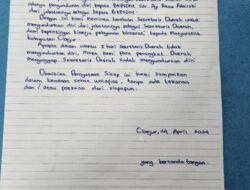 adanya pengunduran diri kepala BKPSDM Sdr Aji Reza Admirsi
dari jabatannya sebagai kepala BKPSDM.
Dengan ini kami meminta kesediaan Sekretaris Daerah untuk
mengundurkan diri dari jabatannya sebagai Sekretaris Daerah
dan kepentingan kinerja pelayanan birokrasi kepada Masyarakat
Kabupaten Cianjur.
Apabila dalam waktu 2 hari Sekretaris Daerah tidak
mengundurkan diri, Maka kami para perangkat Daerah
Menganggap Sekretaris Daerah sudah mengundurkan diri.
Demikian Pernyataan Sikap ini kami sampaikan
dalam keadaan sehat walafiat, tanpa ada tekanan
dan / atau paksaan dari siapapun.
Cianjur, 14 April 2024
yang bertanda tangan.